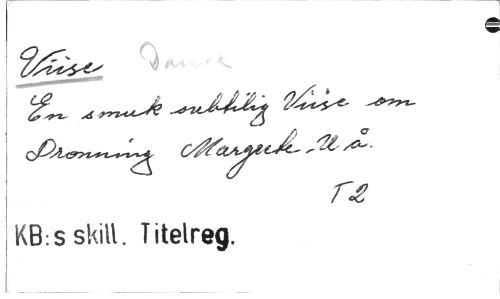 Viise Dansk
En smuk subtilig Viise om
Dronning Margrete. U å.
T 2
KB:s skill. Titelreg.